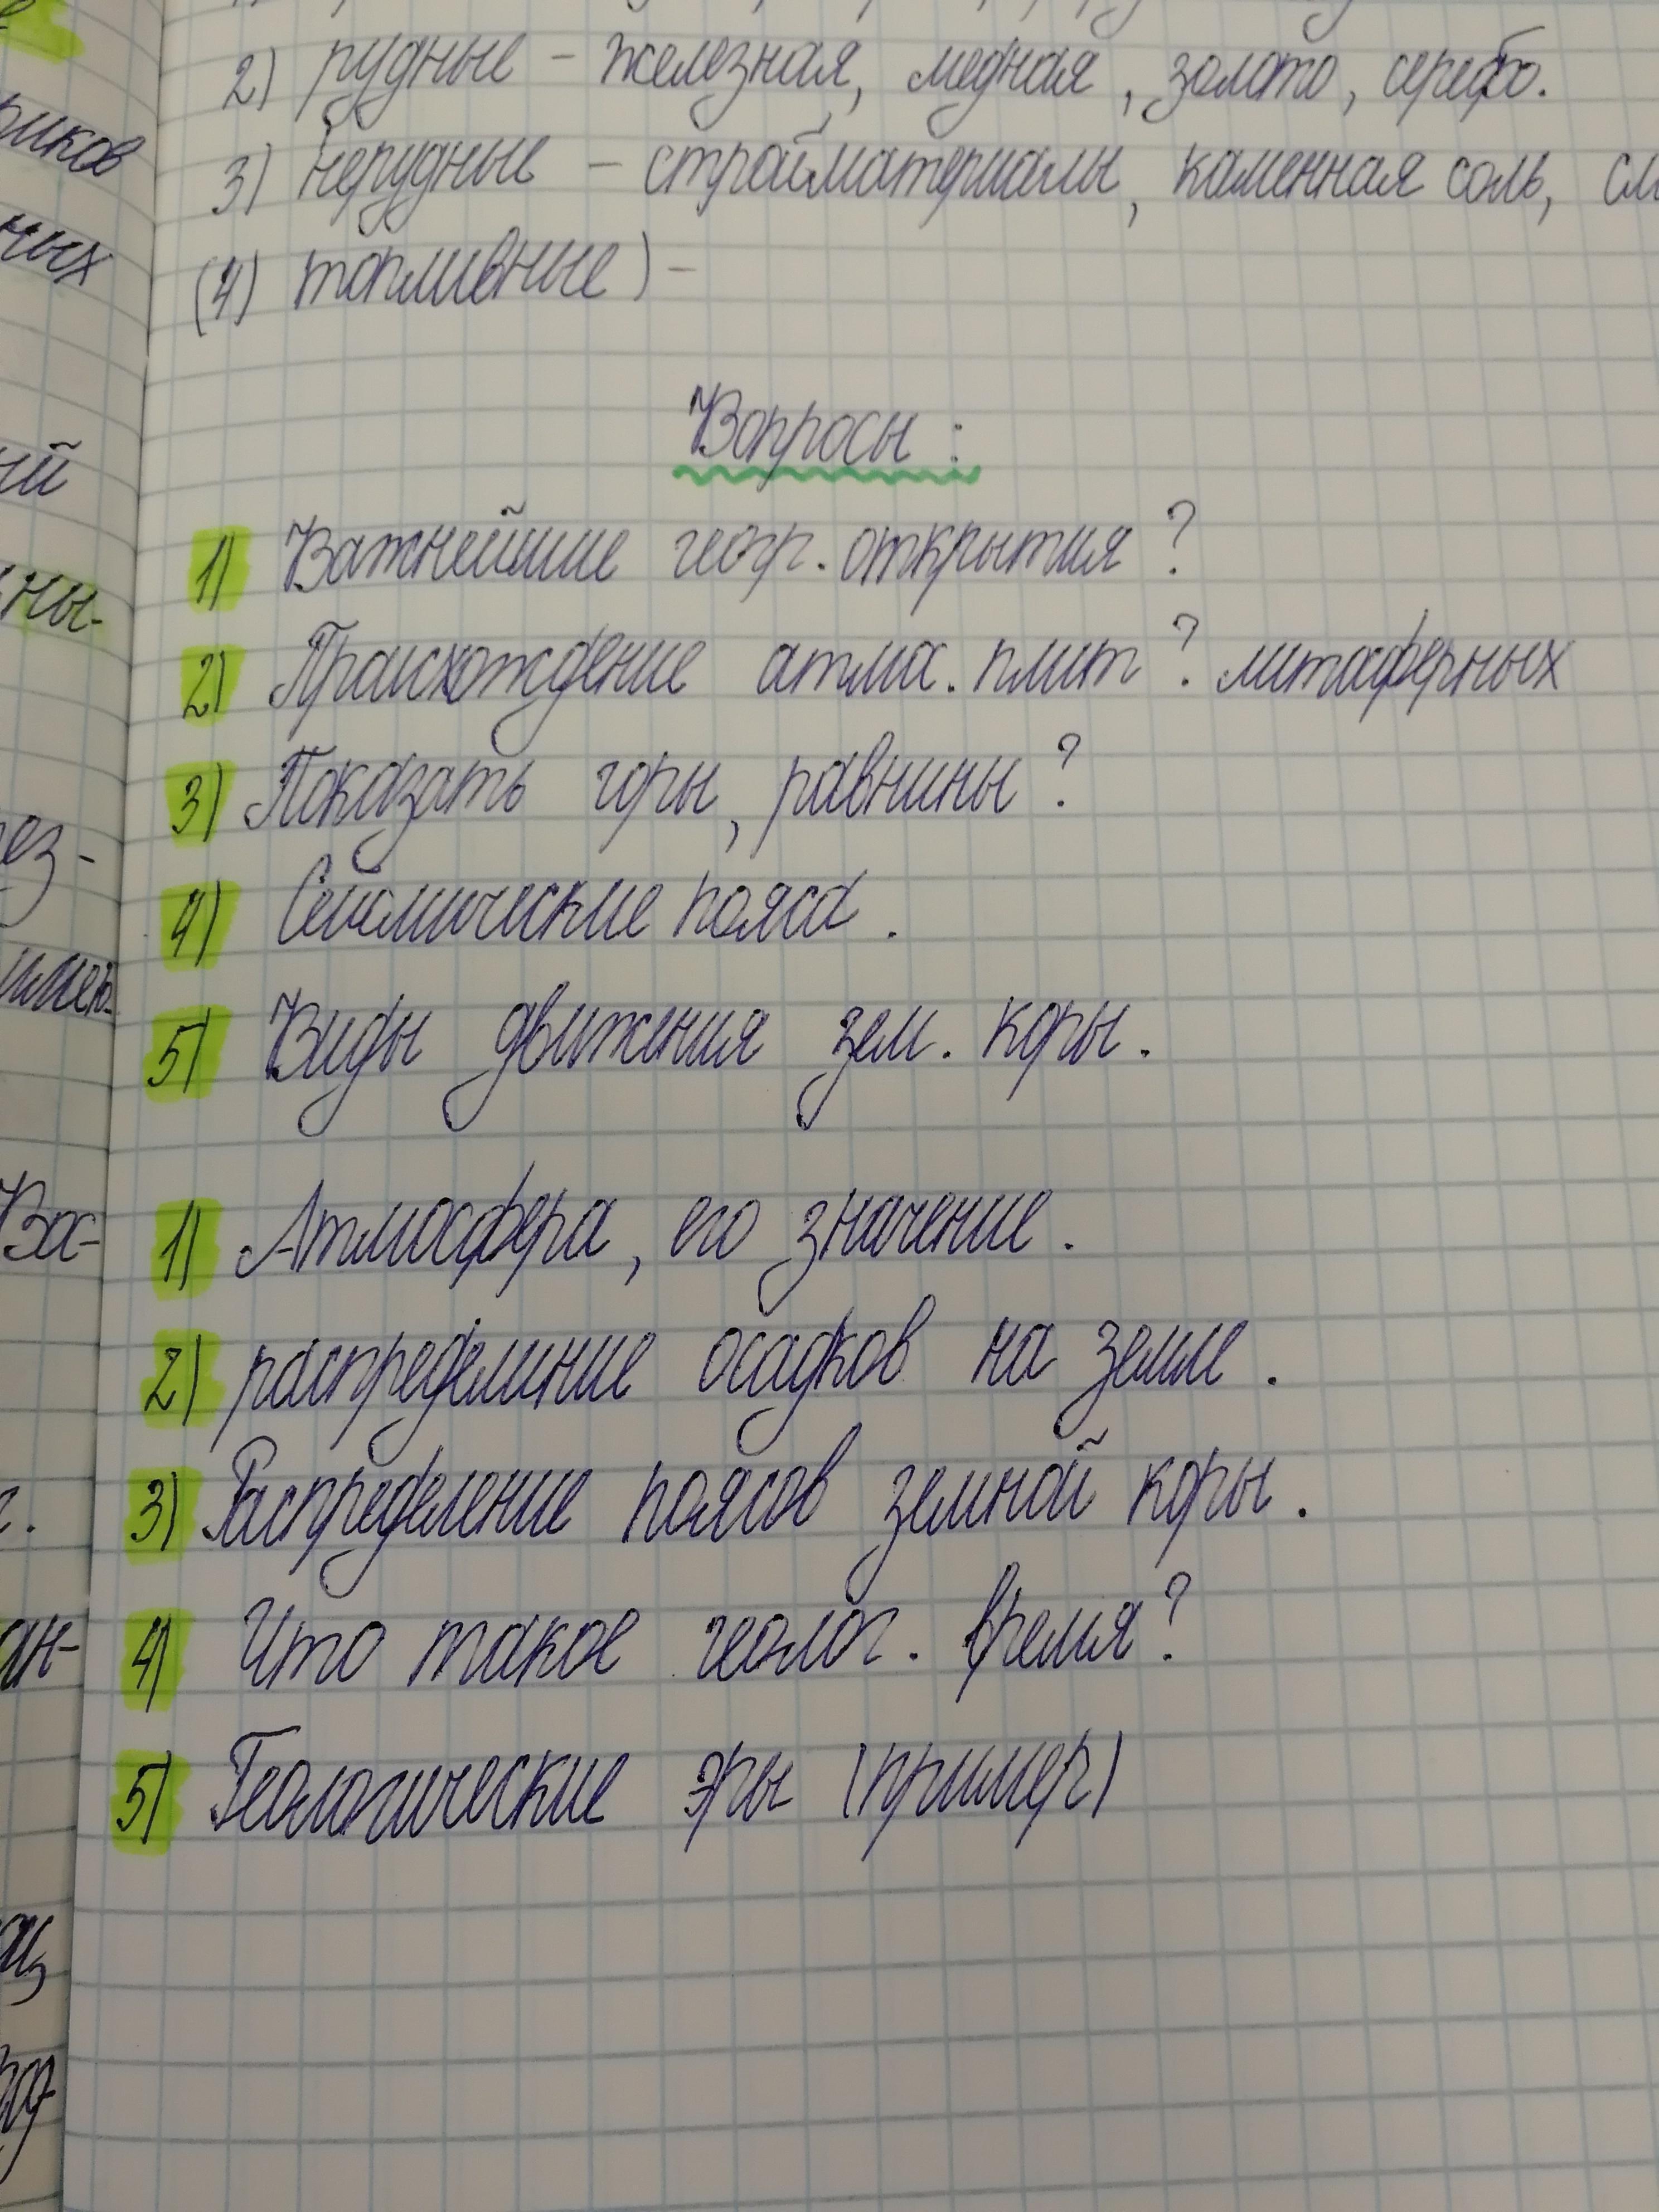 2) рудные – железная, медная, золото, серебо.
3) нерудные – стройматериалы, каменная соль, сл
(4) топливные) –
Вопросы:
1) Важнейшие геогр. открытия?
2) Происхождение атмос. плит? литосферных
3) Показать горы, равнины?
4) Сейсмические пояса.
5) Виды движения зем. коры.
1) Атмосфера, его значение.
2) распределиние осадков на земле.
3) Распределение поясов земной коры.
4) Что такое геолог. время?
5) Геологические эры (пример)
риков
ных
ий
ны-
ез-
имею-
Вос-
г.
ан-